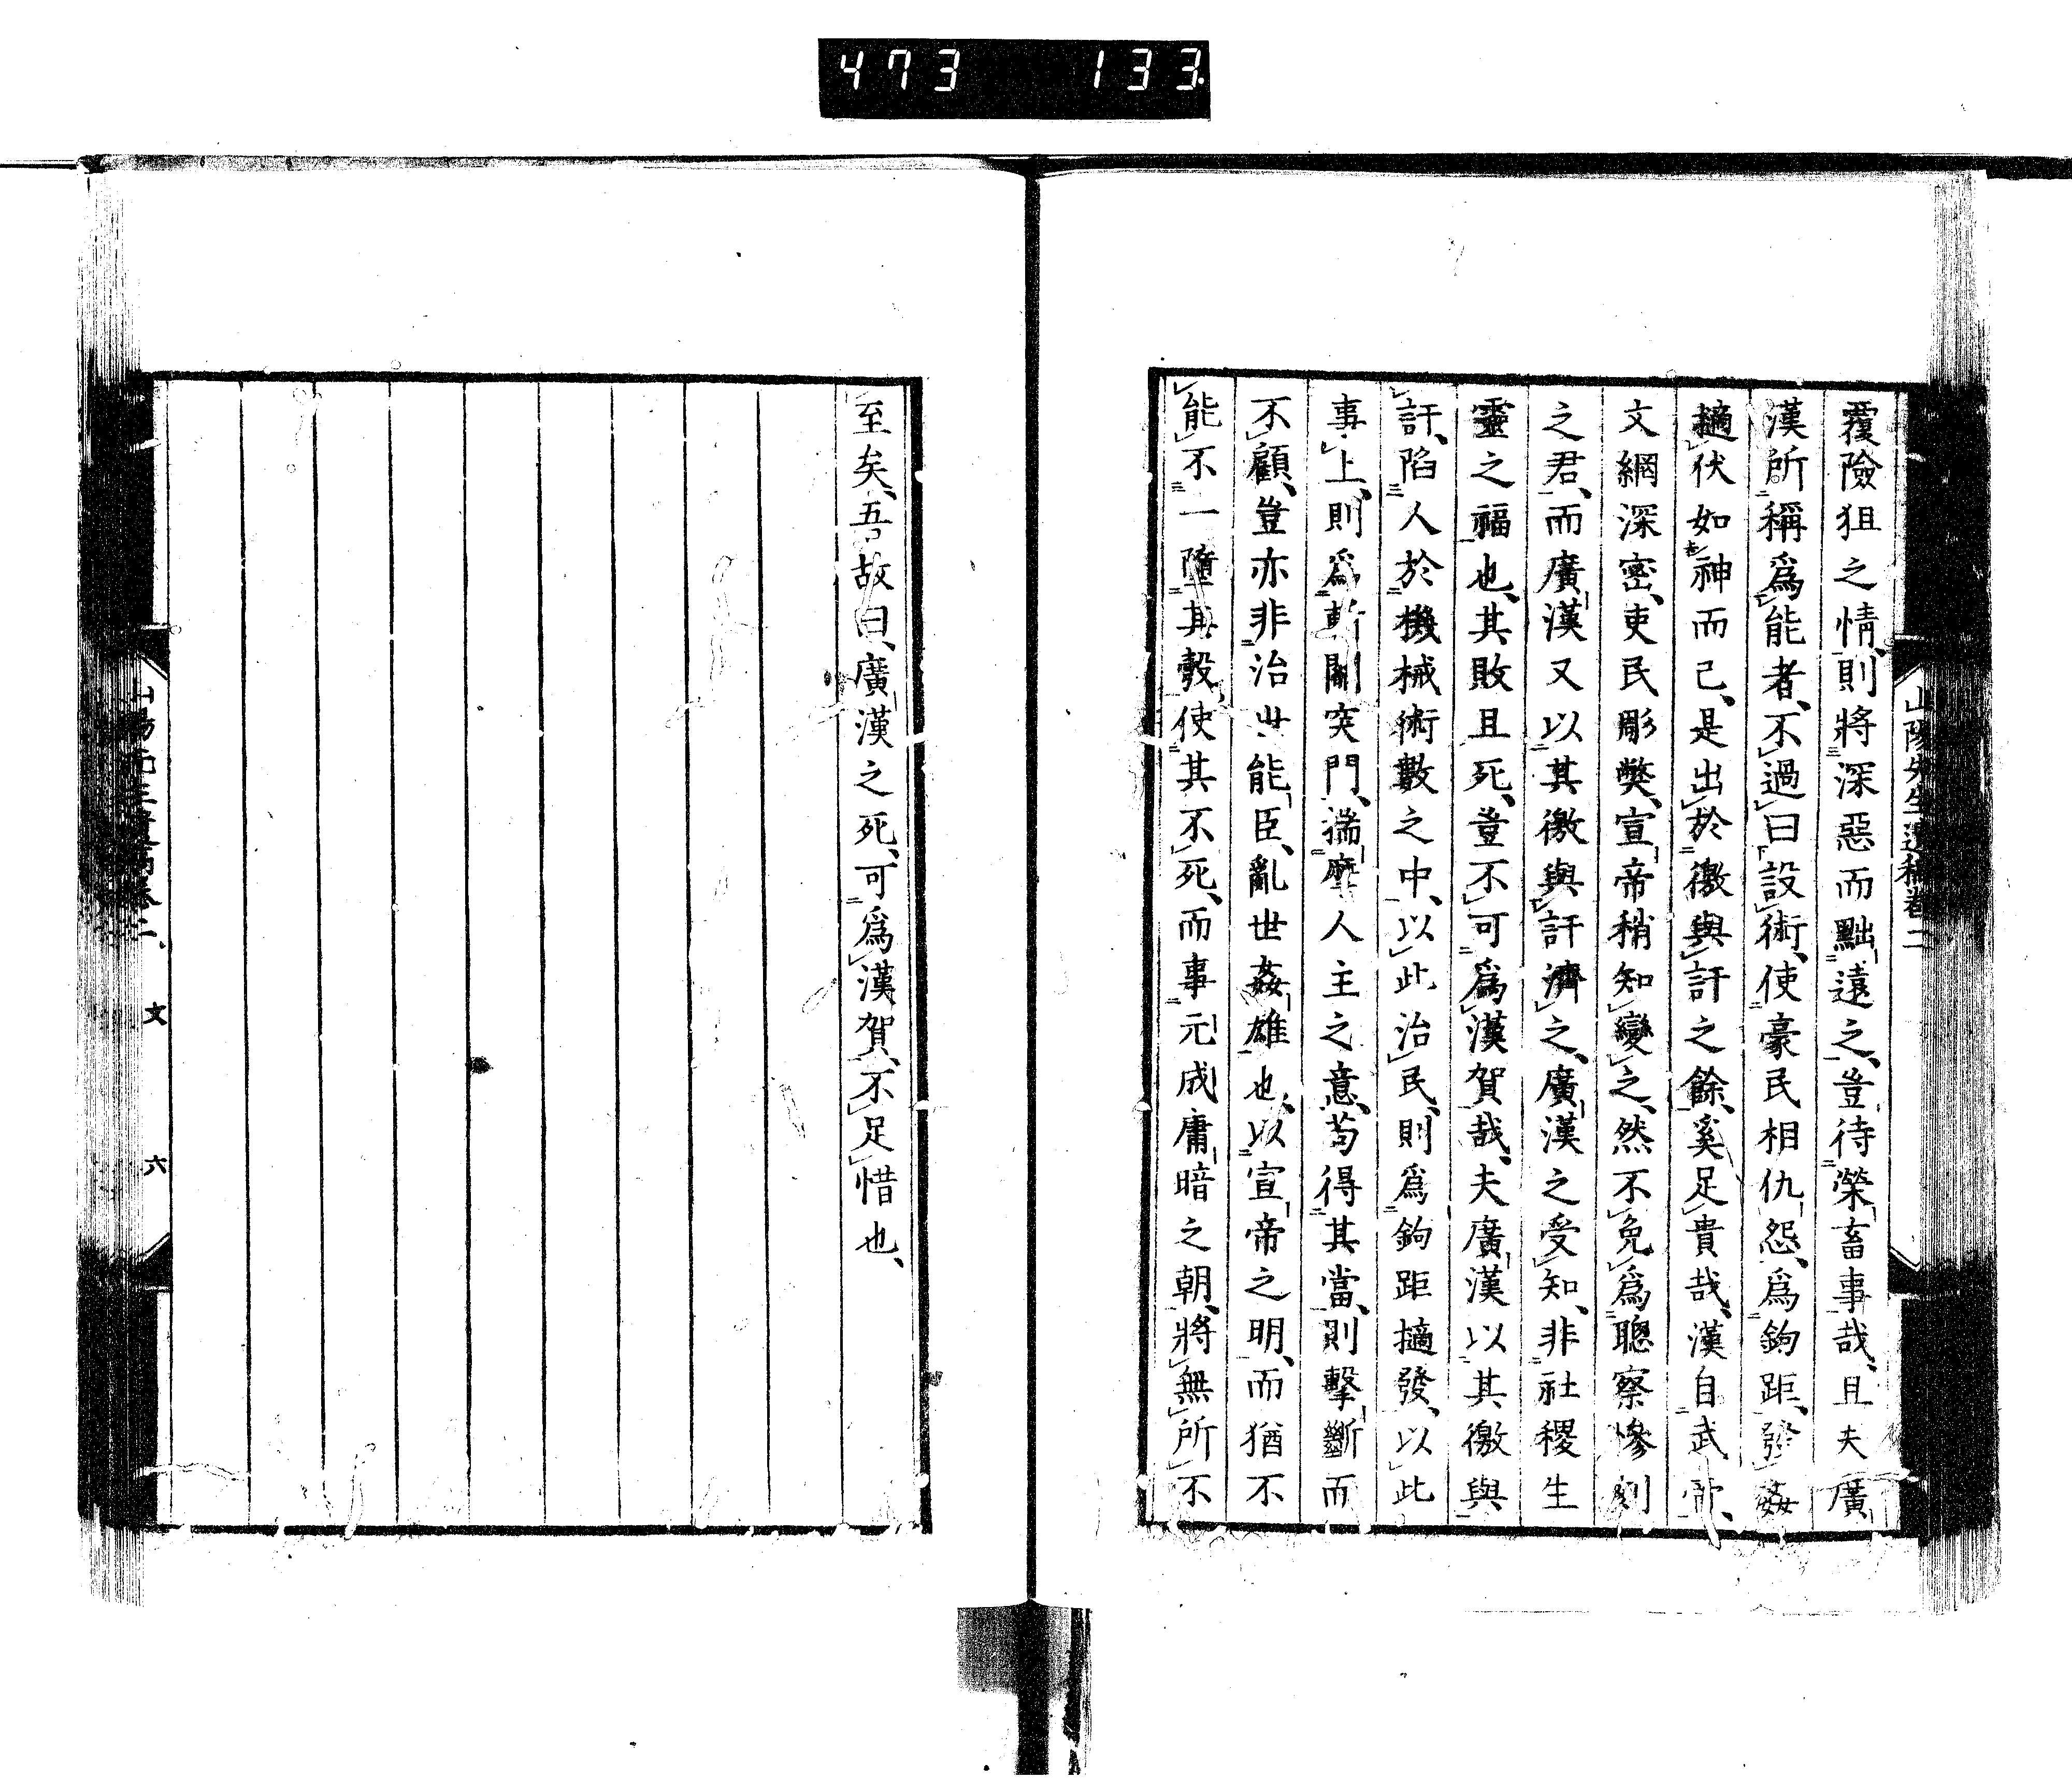 473 133
山陽先生遺稿卷二
覆險狙之情、則將深惡而黜遠之、豈待榮畜事哉、且夫廣
漢所稱爲能者、不過曰設術、使豪民相仇怨、爲鉤距、發姦
擿伏如神而已、是出於徼與訐之餘、奚足貴哉、漢自武帝、
文網深密、吏民彫弊、宣帝稍知變之、然不免爲聰察慘刻
之君、而廣漢又以其徼與訐濟之、廣漢之受知、非社稷生
靈之福也、其敗且死、豈不可爲漢賀哉、夫廣漢以其徼與
訐、陷人於機械術數之中、以此治民、則爲鉤距擿發、以此
事上、則爲斬關突門、揣摩人主之意、苟得其當、則擊斷而
不顧、豈亦非治世能臣、亂世姦雄也、以宣帝之明、而猶不
能不一墮其彀、使其不死、而事元成庸暗之朝、將無所不
至矣、吾故曰、廣漢之死、可爲漢賀、不足惜也、
山陽先生遺稿卷二、 文 六